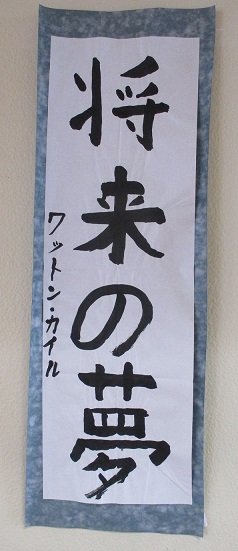 将来の夢
ワットン・カイル